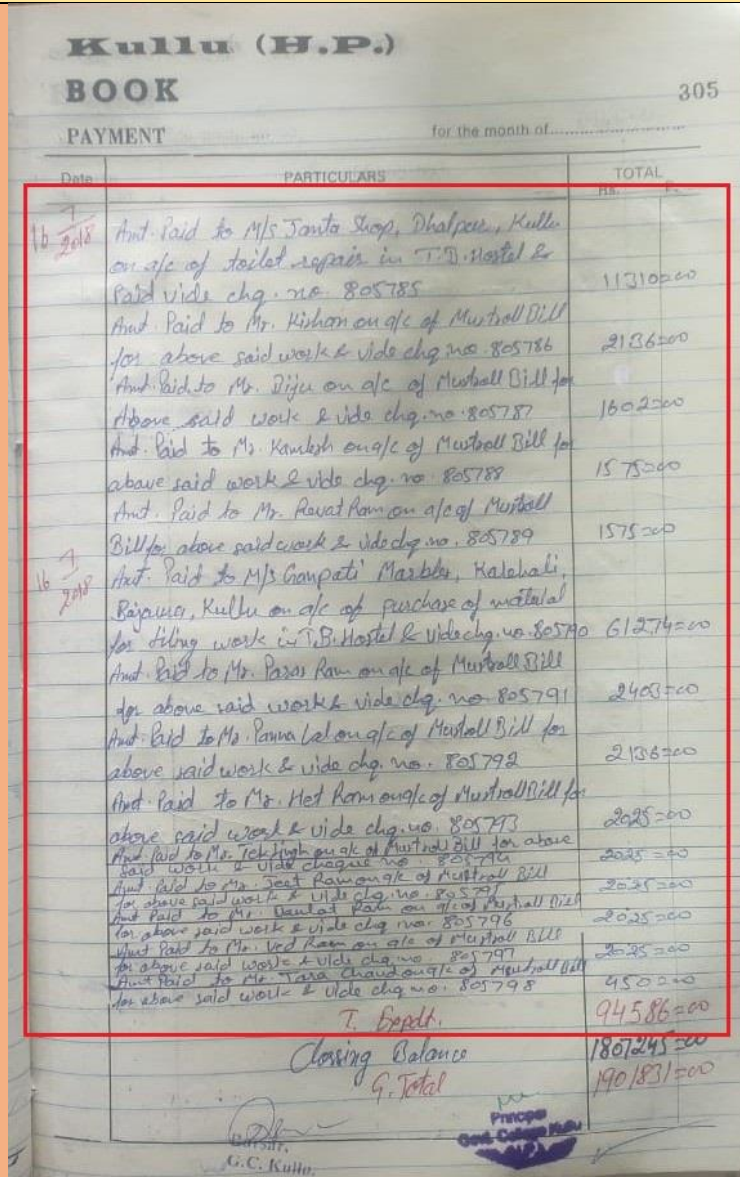 Kullu (H.P.)
BOOK
305
PAYMENT for the month of
Date PARTICULARS TOTAL
Rs. P.
16 7/2018 Amt. Paid to M/s Janta Shop, Dhalpur, Kullu
on a/c of toilet repair in T.B. Hostel &
Paid vide chq. no. 805785 11310=00
Amt. Paid to Mr. Kishan on a/c of Mustroll Bill
for above said work & vide chq no. 805786 2136=00
Amt. Paid to Mr. Biju on a/c of Mustroll Bill for
Above said work & vide chq. no. 805787 1602=00
Amt. Paid to Mr. Kamlesh on a/c of Mustroll Bill for
above said work & vide chq. no. 805788 1575=00
Amt. Paid to Mr. Revat Ram on a/c of Mustroll
Bill for above said work & vide chq. no. 805789 1575=00
16 7/2018 Amt. Paid to M/s Ganpati Marbles, Kalehali,
Bajaura, Kullu on a/c of purchase of material
for tiling work in T.B. Hostel & vide chq. no. 805790 61274=00
Amt. Paid to Mr. Paras Ram on a/c of Mustroll Bill
for above said work & vide chq. no. 805791 2403=00
Amt. Paid to Mr. Panna Lal on a/c of Mustroll Bill for
above said work & vide chq. no. 805792 2136=00
Amt. Paid to Mr. Het Ram on a/c of Mustroll Bill for
above said work & vide chq. no. 805793 2025=00
Amt. Paid to Mr. Tek Singh on a/c of Mustroll Bill for above
said work & vide cheque no. 805794 2025=00
Amt. Paid to Mr. Jeet Ram on a/c of Mustroll Bill
for above said work & vide chq. no. 805795 2025=00
Amt Paid to Mr. Daulat Ram on a/c of Mustroll Bill
for above said work & vide chq no. 805796 2025=00
Amt Paid to Mr. Ved Ram on a/c of Mustroll Bill
for above said work & vide chq no. 805797 2025=00
Amt Paid to Mr. Tara Chand on a/c of Mustroll Bill
for above said work & vide chq no. 805798 450=00
T. Expdt. 94586=00
Closing Balance 1807245=00
G. Total 1901831=00
Bursar,
G.C. Kullu.
Principal
Govt. College Kullu